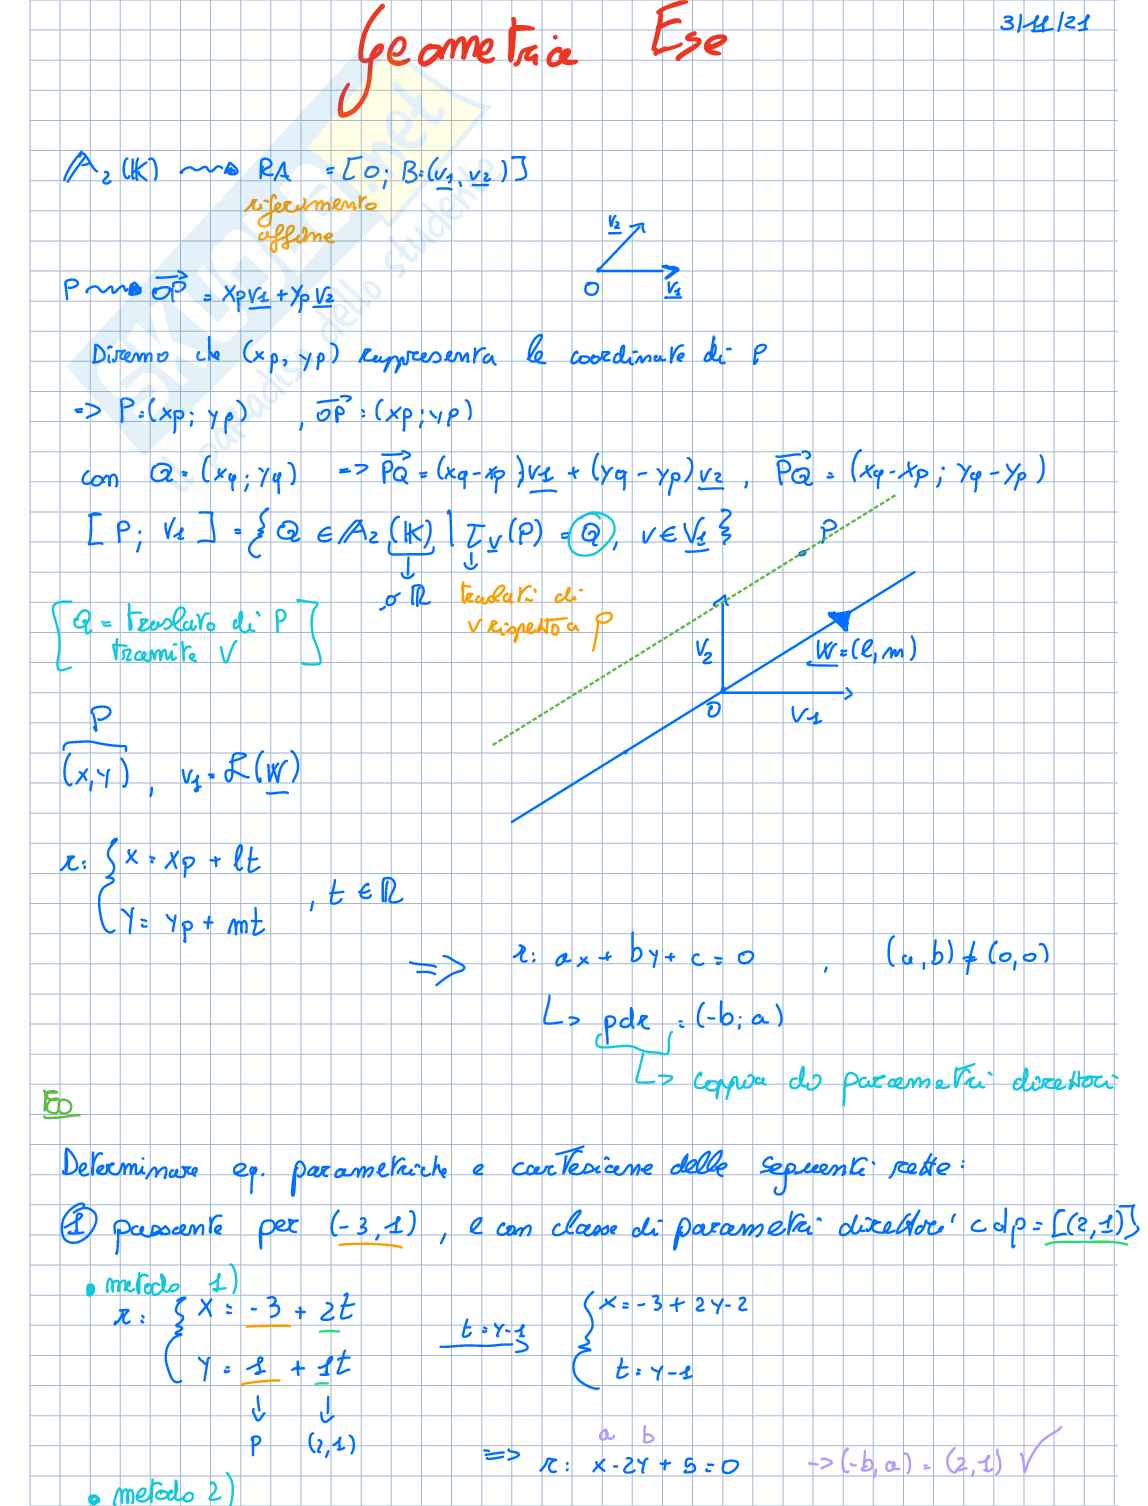 Geometria Ese
3/11/21
A₂(K) ⇝ RA = [O; B:(v1, v2)]
riferimento
affine
v2
O
v1
P ⇝ OP = xp v1 + yp v2
Diremo che (xp, yp) rappresenta le coordinate di P
=> P:(xp; yp) , OP:(xp; yp)
con Q = (xq; yq) => PQ = (xq-xp)v1 + (yq-yp)v2, PQ = (xq-xp; yq-yp)
[P; V1] = { Q ∈ A₂(K) | τv(P) = Q, v ∈ V1 }
P
↓ o R
↓ traslati di
v rispetto a P
[Q = traslato di P
tramite V]
V2
W = (l, m)
O
V1
P
(x,y) , v1 = L(W)
r: { x = xp + lt
y = yp + mt , t ∈ R
=> r: ax + by + c = 0 , (a,b) ≠ (0,0)
↳ pdr = (-b; a)
↳ coppia di parametri direttori
Es
Determinare eq. parametriche e cartesiane delle seguenti rette:
① passante per (-3,1), e con classe di parametri direttori cdp = [(2,1)]
• metodo 1)
r: { x = -3 + 2t
y = 1 + 1t
t = y-1
→
{ x = -3 + 2y - 2
t = y-1
↓ ↓
P (2,1)
a b
=> r: x - 2y + 5 = 0 -> (-b, a) = (2,1) ✓
• metodo 2)
SKUOLA.net
il paradiso dello studente